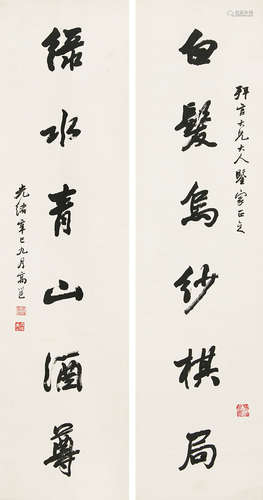 白髮烏紗棋局
拜言大兄大人鑒家正之
綠水青山酒尊
光緒辛巳九月高邕